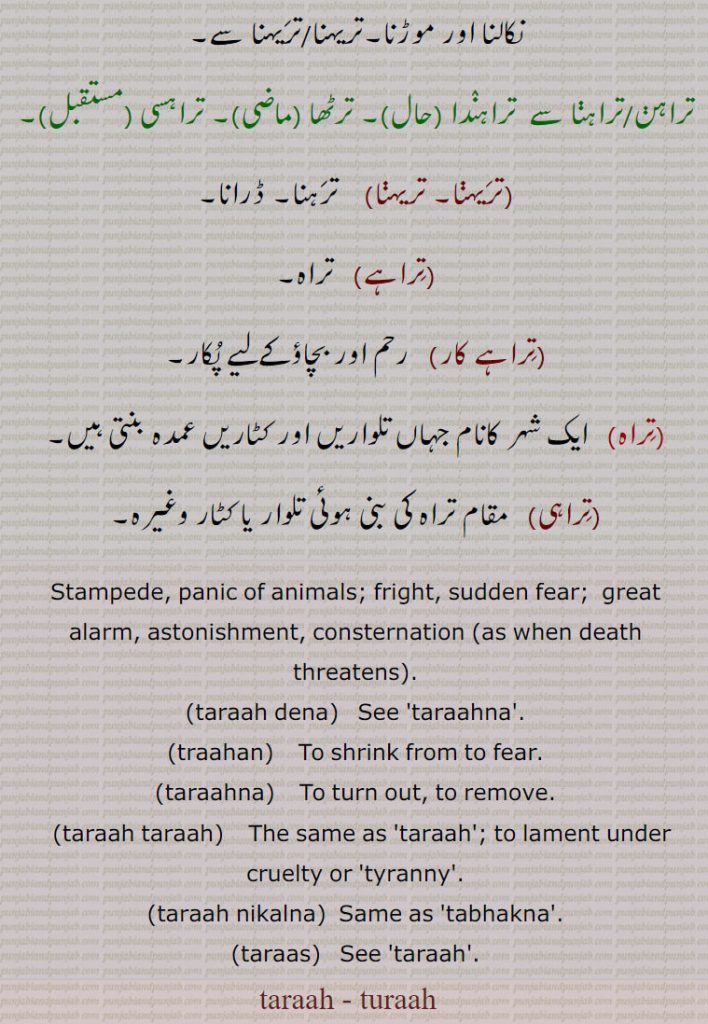 نکالنا اور موڑنا۔تریہنا/ترَیہنا سے۔
تراہݨ/تراہݨا سے تراہنْدا (حال)۔ ترٹھا (ماضی)۔ تراہسی (مستقبل)۔
(ترَیہݨا۔ تریہݨا) ترَہنا۔ ڈرانا۔
(تِراہے) تراہ۔
(تِراہے کار) رحم اور بچاؤ کےلیے پُکار۔
(تِراہ) ایک شہر کانام جہاں تلواریں اور کٹاریں عمدہ بنتی ہیں۔
(تِراہی) مقام تراہ کی بنی ہوئی تلوار یا کٹار وغیرہ۔
Stampede, panic of animals; fright, sudden fear; great
alarm, astonishment, consternation (as when death
threatens).
(taraah dena) See 'taraahna'.
(traahan) To shrink from to fear.
(taraahna) To turn out, to remove.
(taraah taraah) The same as 'taraah'; to lament under
cruelty or 'tyranny'.
(taraah nikalna) Same as 'tabhakna'.
(taraas) See 'taraah'.
taraah - turaah